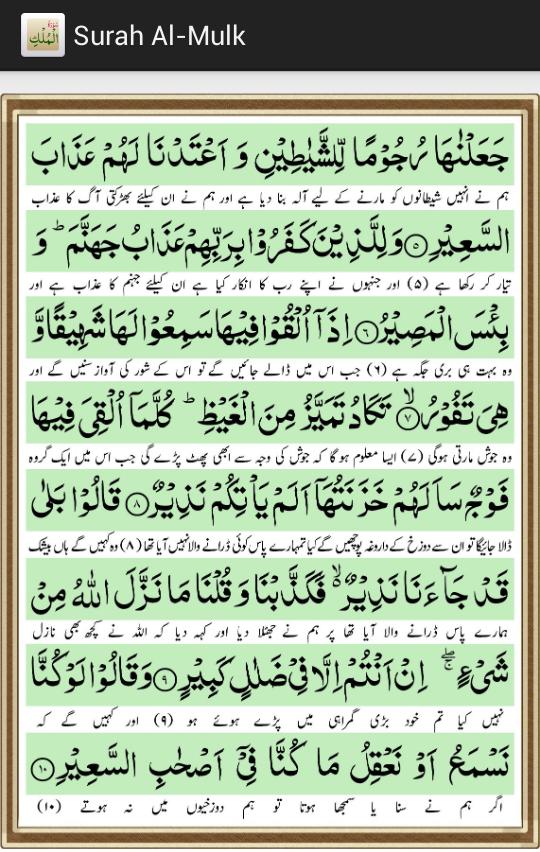 الْمُلْكِ
Surah Al-Mulk
جَعَلْنٰهَا رُجُوْمًا لِّلشَّيٰطِيْنِ وَ اَعْتَدْنَا لَهُمْ عَذَابَ
ہم نے انہیں شیطانوں کو مارنے کے لیے آلہ بنا دیا ہے اور ہم نے ان کیلئے بھڑکتی آگ کا عذاب
السَّعِيْرِ ۝۵ وَ لِلَّذِيْنَ كَفَرُوْا بِرَبِّهِمْ عَذَابُ جَهَنَّمَ ؕ وَ
تیار کر رکھا ہے (۵) اور جنہوں نے اپنے رب کا انکار کیا ہے ان کیلئے جہنم کا عذاب ہے اور
بِئْسَ الْمَصِيْرُ ۝۶ اِذَاۤ اُلْقُوْا فِيْهَا سَمِعُوْا لَهَا شَهِيْقًا وَّ
وہ بہت ہی بری جگہ ہے (۶) جب اس میں ڈالے جائیں گے تو اس کے شور کی آواز سنیں گے اور
هِيَ تَفُوْرُ ۝۷ۙ تَكَادُ تَمَيَّزُ مِنَ الْغَيْظِ ؕ كُلَّمَاۤ اُلْقِيَ فِيْهَا
وہ جوش مارتی ہوگی (۷) ایسا معلوم ہو گا کہ جوش کی وجہ سے ابھی پھٹ پڑے گی جب اس میں ایک گروہ
فَوْجٌ سَاَلَهُمْ خَزَنَتُهَاۤ اَلَمْ يَاْتِكُمْ نَذِيْرٌ ۝۸ قَالُوْا بَلٰى
ڈالا جائیگا تو ان سے دوزخ کے داروغہ پوچھیں گے کیا تمہارے پاس کوئی ڈرانے والا نہیں آیا تھا (۸) وہ کہیں گے ہاں بیشک
قَدْ جَآءَنَا نَذِيْرٌ ۙ۬ فَكَذَّبْنَا وَ قُلْنَا مَا نَزَّلَ اللّٰهُ مِنْ
ہمارے پاس ڈرانے والا آیا تھا پر ہم نے جھٹلا دیا اور کہہ دیا کہ اللہ نے کچھ بھی نازل
شَيْءٍ ۖۚ اِنْ اَنْتُمْ اِلَّا فِيْ ضَلٰلٍ كَبِيْرٍ ۝۹ وَ قَالُوْا لَوْ كُنَّا
نہیں کیا تم خود بڑی گمراہی میں پڑے ہوئے ہو (۹) اور کہیں گے کہ
نَسْمَعُ اَوْ نَعْقِلُ مَا كُنَّا فِيْۤ اَصْحٰبِ السَّعِيْرِ ۝۱۰
اگر ہم نے سنا یا سمجھا ہوتا تو ہم دوزخیوں میں نہ ہوتے (۱۰)